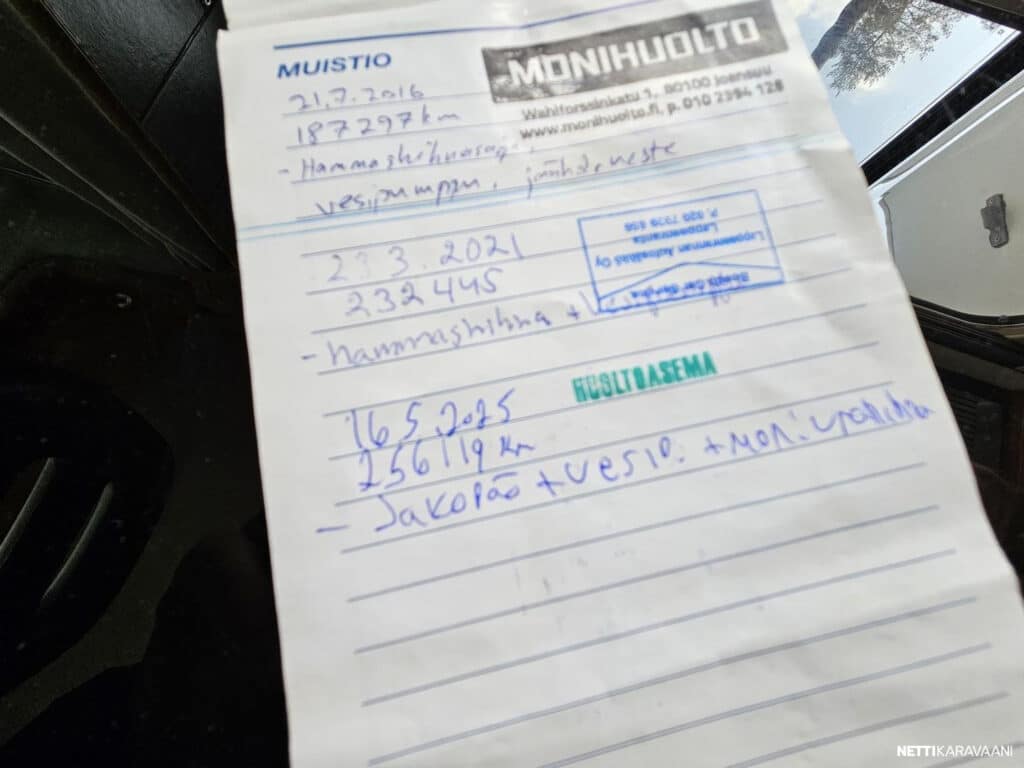 MUISTIO
MONIHUOLTO
Wahlforssinkatu 1, 80100 Joensuu
www.monihuolto.fi, p. 010 2394 128
21.7.2016
187297km
vesipumppu, jäähd. neste
23.3.2021
Lappeenrannan Autosähkö Oy
Lappeenranta
232445
- hammashihna +
HUOLTOASEMA
16.5.2025
256119 km
- Jakopää + vesip. + moniurahihna
NETTIKARAVAANI